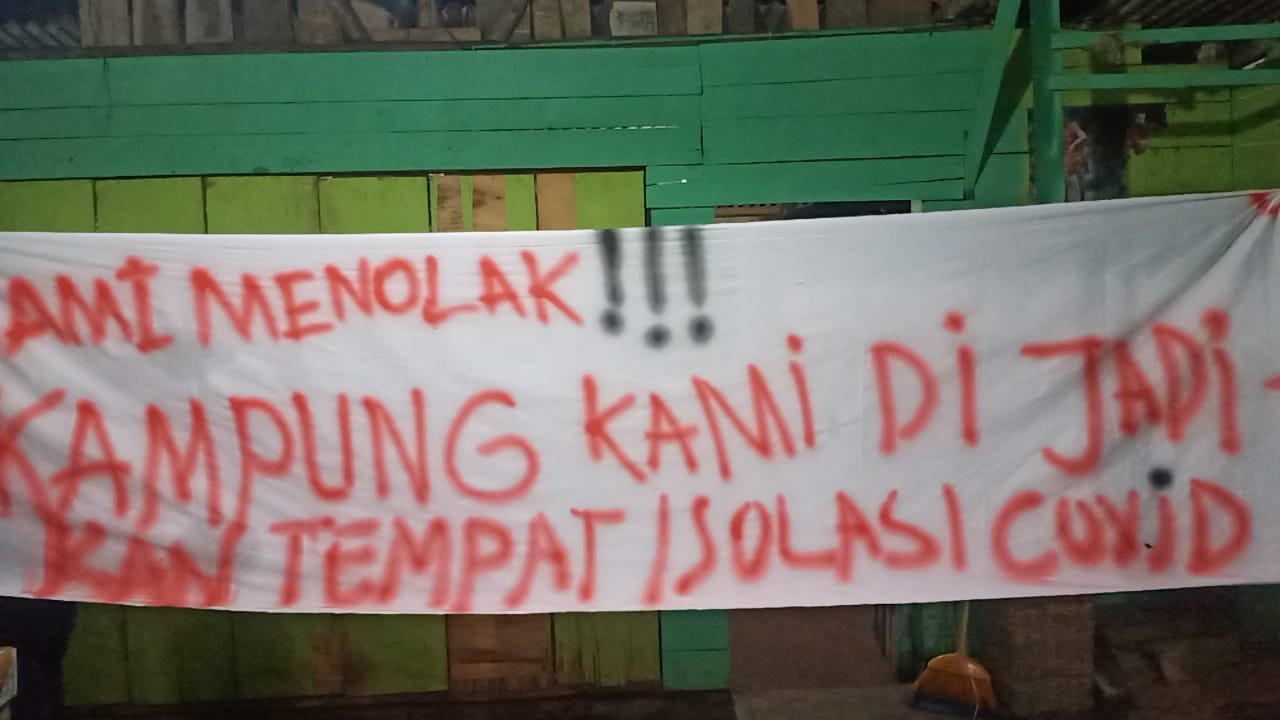 AMI MENOLAK !!!
KAMPUNG KAMI DI JADI-
KAN TEMPAT ISOLASI COVID